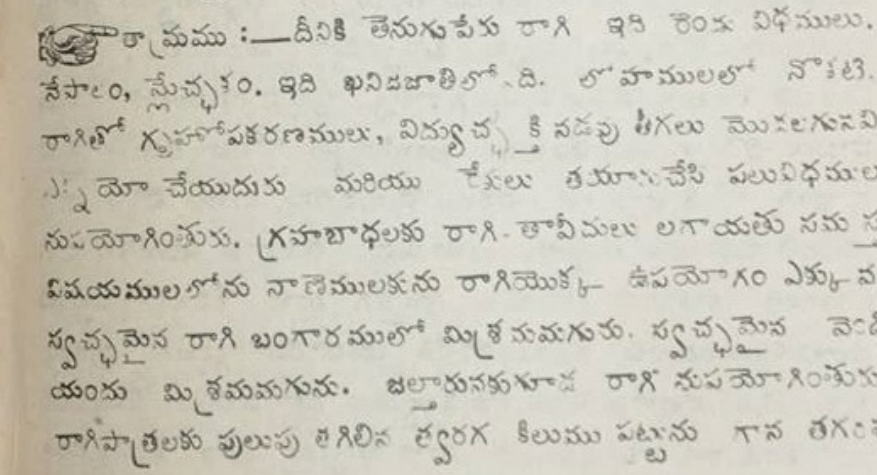 తామ్రము :—దీనికి తెనుగుపేరు రాగి ఇది రెండు విధములు.
నేపాలం, మ్లేచ్ఛకం. ఇది ఖనిజజాతిలోది. లోహములలో నొకటి.
రాగితో గృహోపకరణములు, విద్యుచ్ఛక్తి నడపు తీగలు మొదలగునవి
యెన్నియో చేయుదురు మరియు రేకులు తయారుచేసి పలువిధముల
నుపయోగింతురు. గ్రహబాధలకు రాగి తావీదులు లగాయతు సమస్త
విషయములలోను నాణెములకును రాగియొక్క ఉపయోగం ఎక్కువ
స్వచ్ఛమైన రాగి బంగారములో మిశ్రమమగును. స్వచ్ఛమైన వెండి
యందు మిశ్రమమగును. జల్తారునకుగూడ రాగి నుపయోగింతురు
రాగిపాత్రలకు పులుపు తగిలిన త్వరగ కిలుము పట్టును గాన